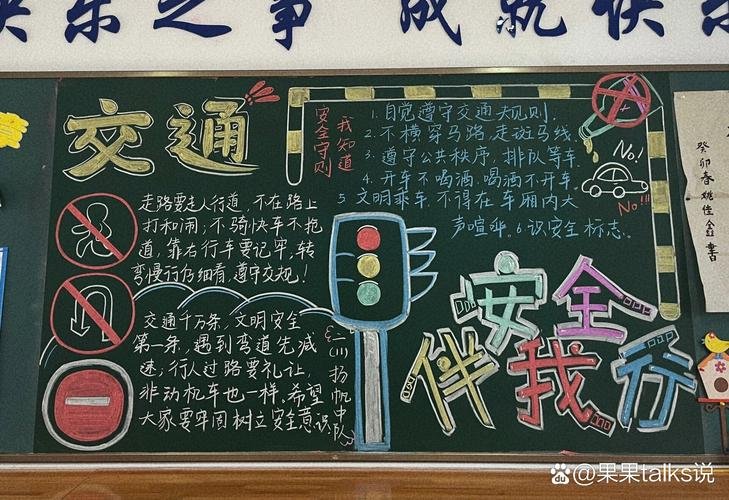 乐之事 成就快乐
交通
安全守则
我知道
1.自觉遵守交通规则.
2.不横穿马路,走斑马线.
3.遵守公共秩序,排队等车.
4.开车不喝酒,喝酒不开车.
5 文明乘车.不得在车厢内大
声喧哗。6识安全标志.
No!
No!!!
走路要走人行道,不在路上
打和闹;不骑快车不抢
道,靠右行车要记牢,转
弯慢行仍细看,遵守交规!
交通千万条,文明安全
第一条,遇到弯道先减
速;行人过路要礼让,
非动机车也一样.希望
大家要牢固树立安全意识
二(八)扬帆中队
安全
伴我行
癸卯春姚佳金書
@果果talks说